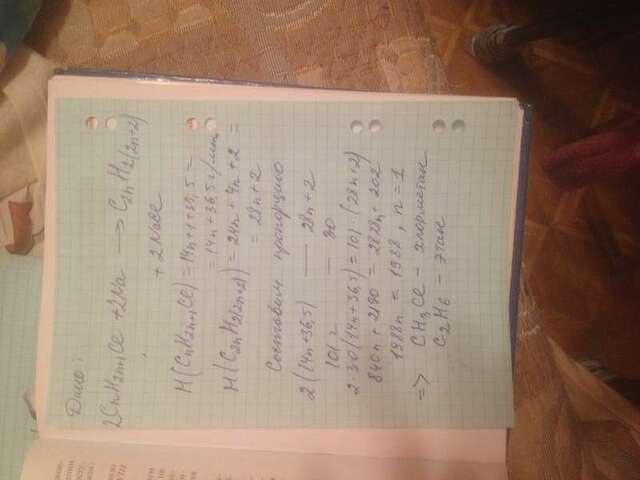 Дано:
2CnH2n+1Cl + 2Na → C2nH2(2n+2)
+ 2NaCl
M(CnH2n+1Cl) = 14n+1+35,5 =
= 14n+36,5 г/моль
M(C2nH2(2n+2)) = 24n + 4n + 2 =
= 28n+2
Составим пропорцию
2(14n+36,5) — 28n+2
101 г — 30
2·30(14n+36,5) = 101·(28n+2)
840n + 2190 = 2828n + 202
1988n = 1988, n = 1
=> CH3Cl – хлорметан
C2H6 – этан